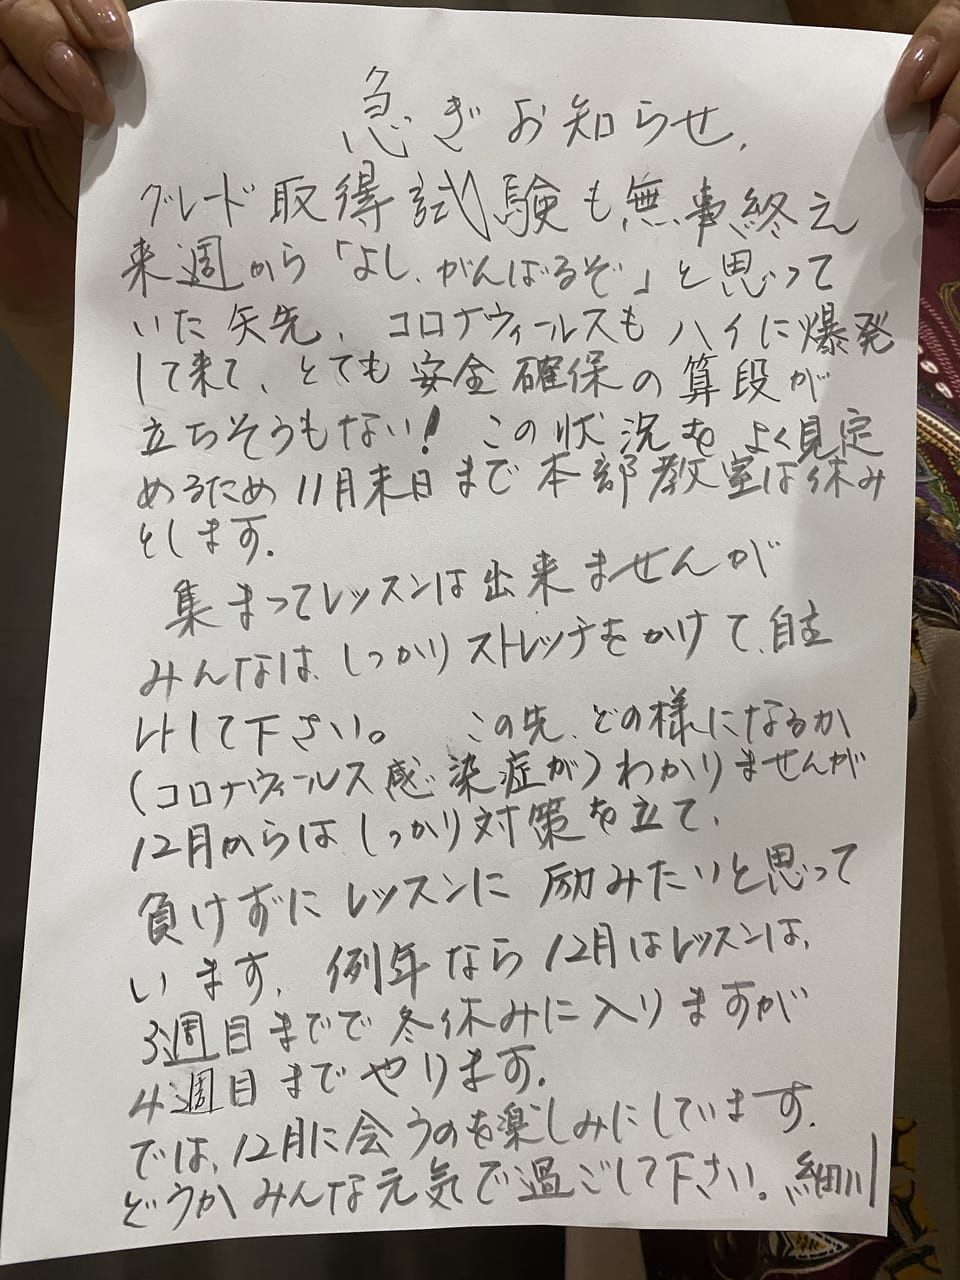 急ぎお知らせ.
グレード取得試験も無事終え
来週から「よし、がんばるぞ」と思って
いた矢先、コロナウィールスもハイに爆発
して来て、とても安全確保の算段が
立ちそうもない! この状況をよく見定
めるため11月末日まで本部教室は休み
とします.
集まってレッスンは出来ませんが
みんなは、しっかりストレッチをかけて、自主
トして下さい。 この先、どの様になるか
(コロナウィールス感染症が)わかりませんが
12月からはしっかり対策を立て、
負けずにレッスンに励みたいと思って
います. 例年なら12月はレッスンは、
3週目までで冬休みに入りますが
4週目までやります.
では、12月に会うのを楽しみにしています.
どうかみんな元気で過ごして下さい。細川